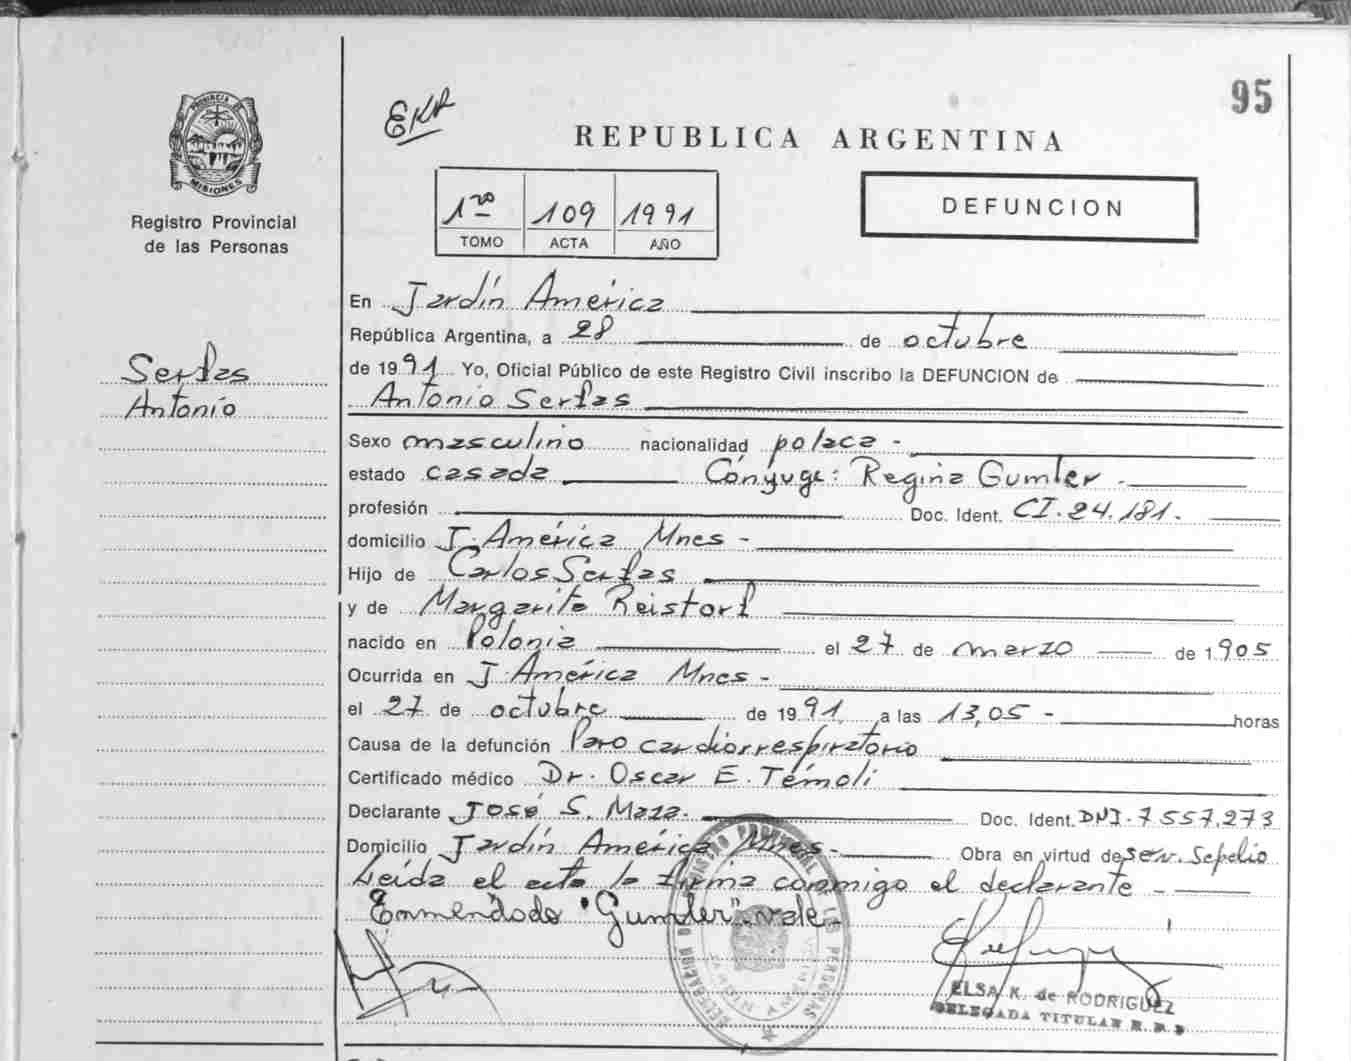 95
EKR
REPUBLICA ARGENTINA
PROVINCIA DE
MISIONES
Registro Provincial
de las Personas
1ro 109 1991
TOMO ACTA AÑO
DEFUNCION
En Jardín América
República Argentina, a 28 de octubre
de 1991 Yo, Oficial Público de este Registro Civil inscribo la DEFUNCION de
Serfas
Antonio
Antonio Serfas
Sexo masculino nacionalidad polaca -
estado casada Cónyuge: Regina Gumler -
profesión Doc. Ident. CI. 24.181.
domicilio J. América Mnes -
Hijo de Carlos Serfas
y de Margarita Reistorf
nacido en Polonia el 27 de marzo de 1905
Ocurrida en J. América Mnes -
el 27 de octubre de 1991 a las 13,05 - horas
Causa de la defunción Paro cardiorrespiratorio
Certificado médico Dr. Oscar E. Témoli
Declarante José S. Maza. Doc. Ident. DNI. 7557.273
Domicilio Jardín América Mnes. - Obra en virtud de serv. Sepelio
Leída el acta la firma conmigo el declarante -
Enmendado "Gumler" vale -
ELSA K. de RODRIGUEZ
DELEGADA TITULAR R.P.P